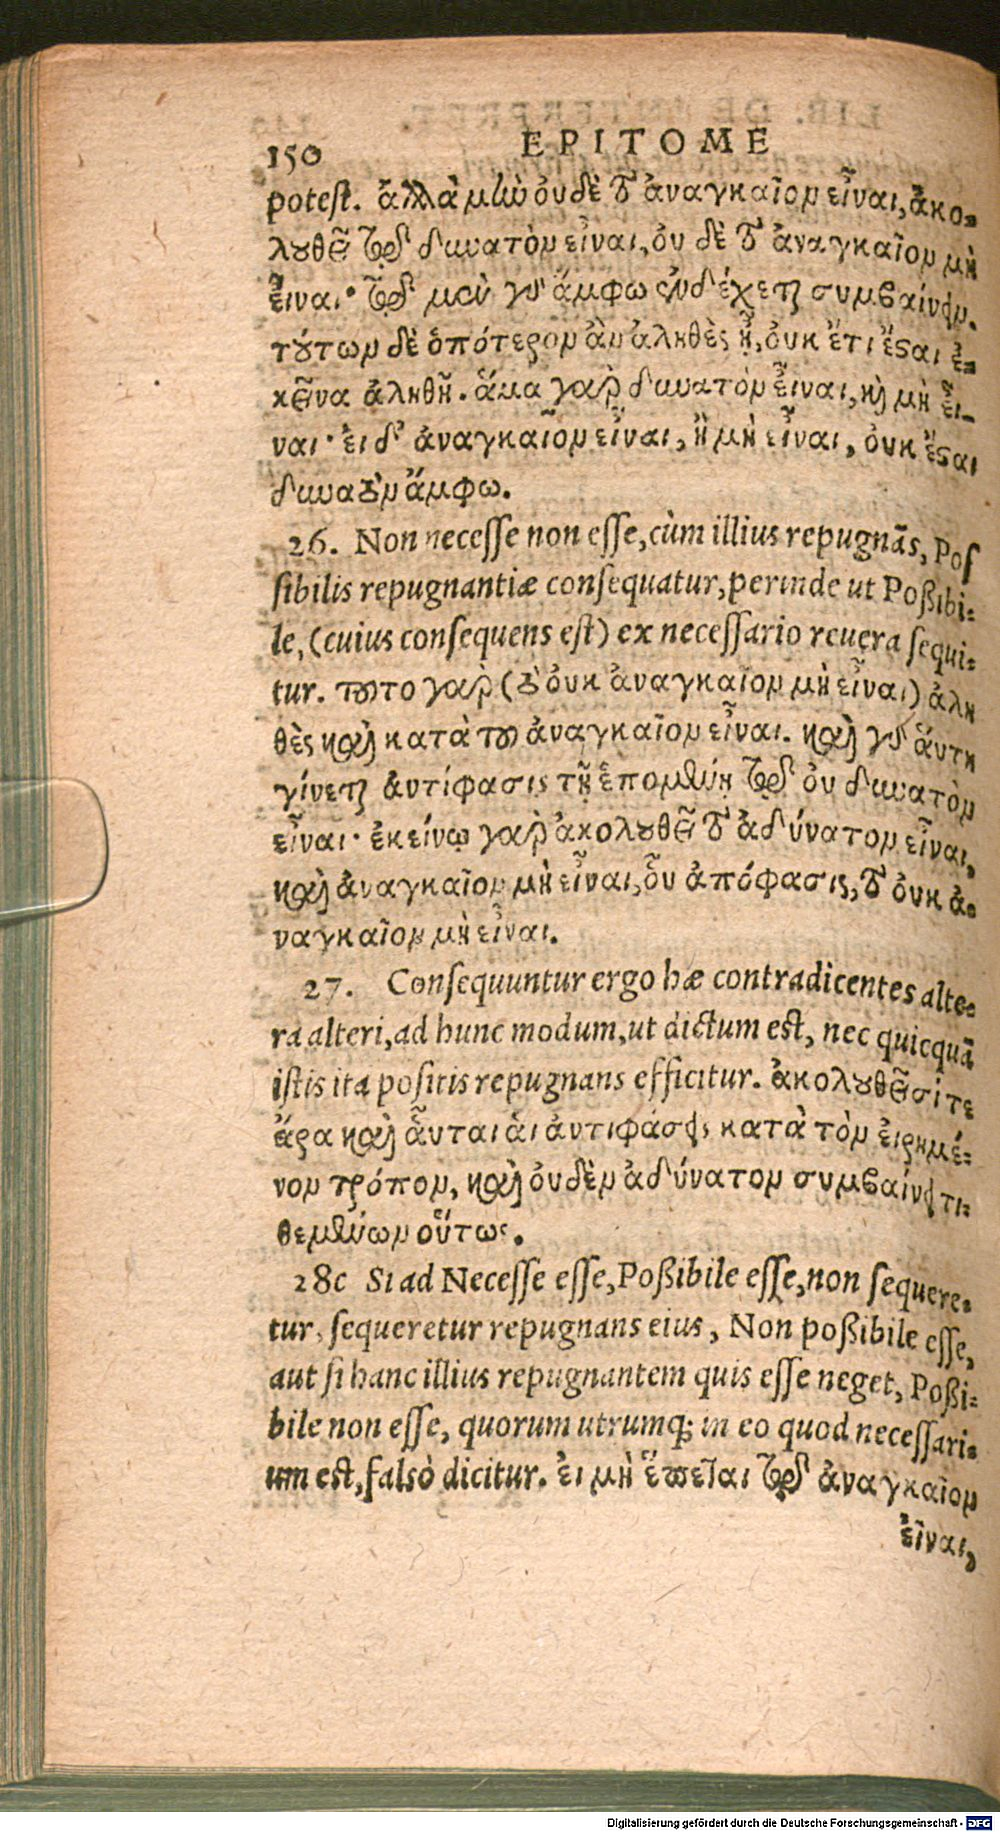 150 EPITOME
potest. ἀλλὰ μὴν οὐδὲ τὸ ἀναγκαῖον εἶναι, ἀκο-
λουθεῖ τῷ δυνατὸν εἶναι, οὐ δὲ τὸ ἀναγκαῖον μὴ
εἶναι· τῷ μὲν γὰρ ἄμφω ἐνδέχεται συμβαίνειν.
τούτων δὲ ὁπότερον ἂν ἀληθὲς ᾖ, οὐκ ἔτι ἔσαι ἐ-
κεῖνα ἀληθῆ. ἅμα γὰρ δυνατὸν εἶναι, καὶ μὴ εἶ-
ναι· εἰ δ' ἀναγκαῖον εἶναι, ἢ μὴ εἶναι, οὐκ ἔσαι
δυνατὸν ἄμφω.
26. Non necesse non esse, cùm illius repugnãs, Pos
sibilis repugnantiæ consequatur, perinde ut Possibi-
le, (cuius consequens est) ex necessario reuera sequi-
tur. τοῦτο γὰρ (τὸ οὐκ ἀναγκαῖον μὴ εἶναι) ἀλη
θὲς καὶ κατὰ τοῦ ἀναγκαῖον εἶναι. καὶ γὰρ αὕτη
γίνεται ἀντίφασις τῇ ἑπομένῃ τῷ οὐ δυνατὸν
εἶναι· ἐκείνῳ γὰρ ἀκολουθεῖ τὸ ἀδύνατον εἶναι,
καὶ ἀναγκαῖον μὴ εἶναι, οὗ ἀπόφασις, τὸ οὐκ ἀ-
ναγκαῖον μὴ εἶναι.
27. Consequuntur ergo hæ contradicentes alte-
ra alteri, ad hunc modum, ut dictum est, nec quicquã
istis ita positis repugnans efficitur. ἀκολουθεῖσί τε
ἄρα καὶ αὗται αἱ ἀντιφάσεις κατὰ τὸν εἰρημέ-
νον τρόπον, καὶ οὐδὲν ἀδύνατον συμβαίνει τι-
θεμένων οὕτως.
28c Si ad Necesse esse, Possibile esse, non sequere-
tur, sequeretur repugnans eius, Non possibile esse,
aut si hanc illius repugnantem quis esse neget, Possi-
bile non esse, quorum utrumq; in eo quod necessari-
um est, falsò dicitur. εἰ μὴ ἕπεται τῷ ἀναγκαῖον
εἶναι,
Digitalisierung gefördert durch die Deutsche Forschungsgemeinschaft - DFG